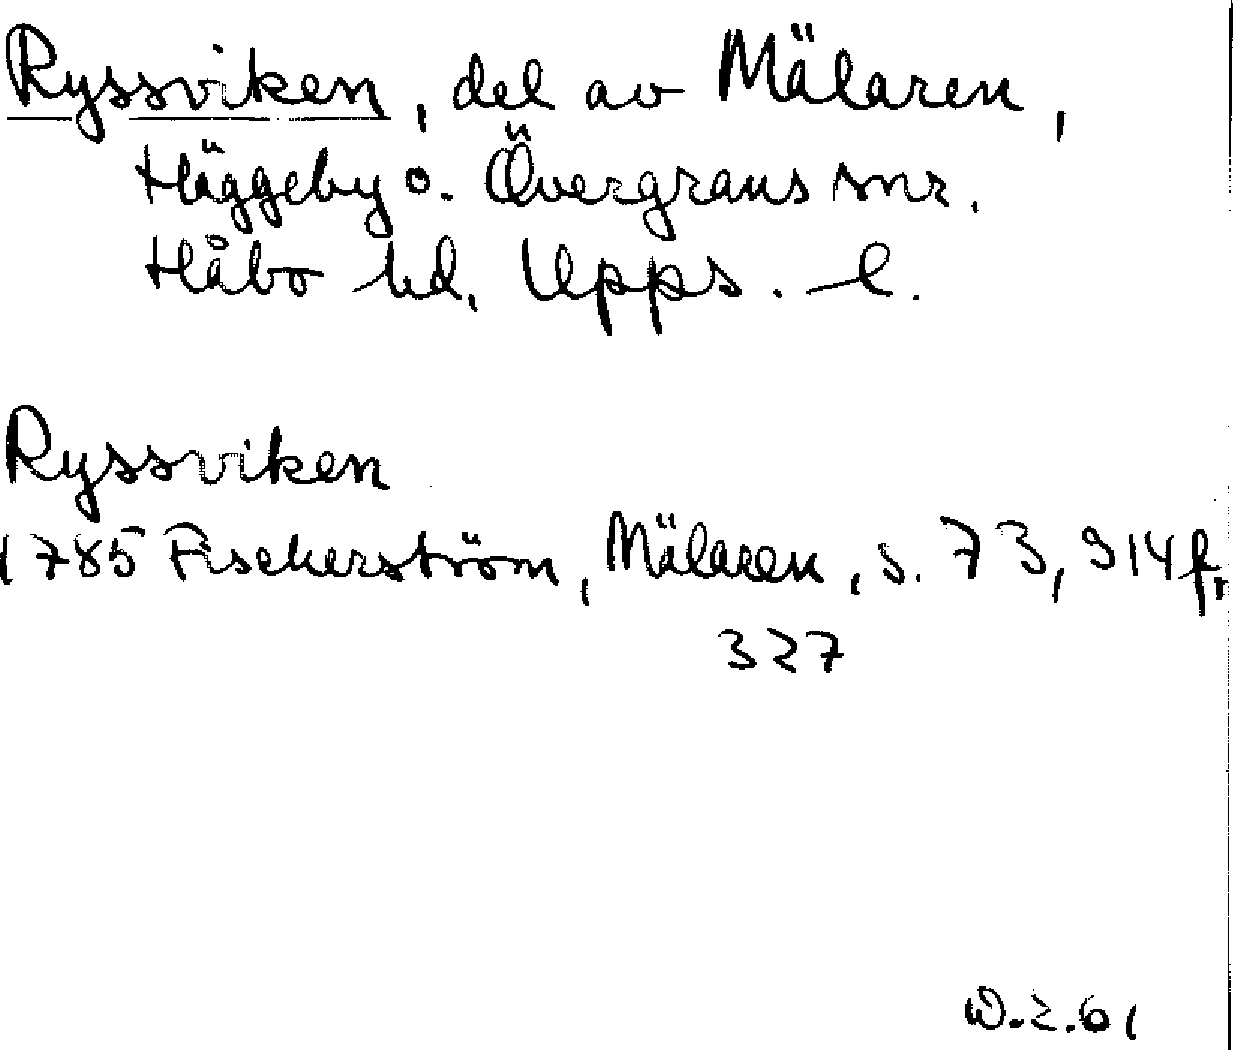 Ryssviken, del av Mälaren,
Häggeby o. Övergrans snr.
Håbo hd, Upps. l.
Ryssviken
1785 Fischerström, Mälaren, s. 73, 314 f,
327
W.Z.61